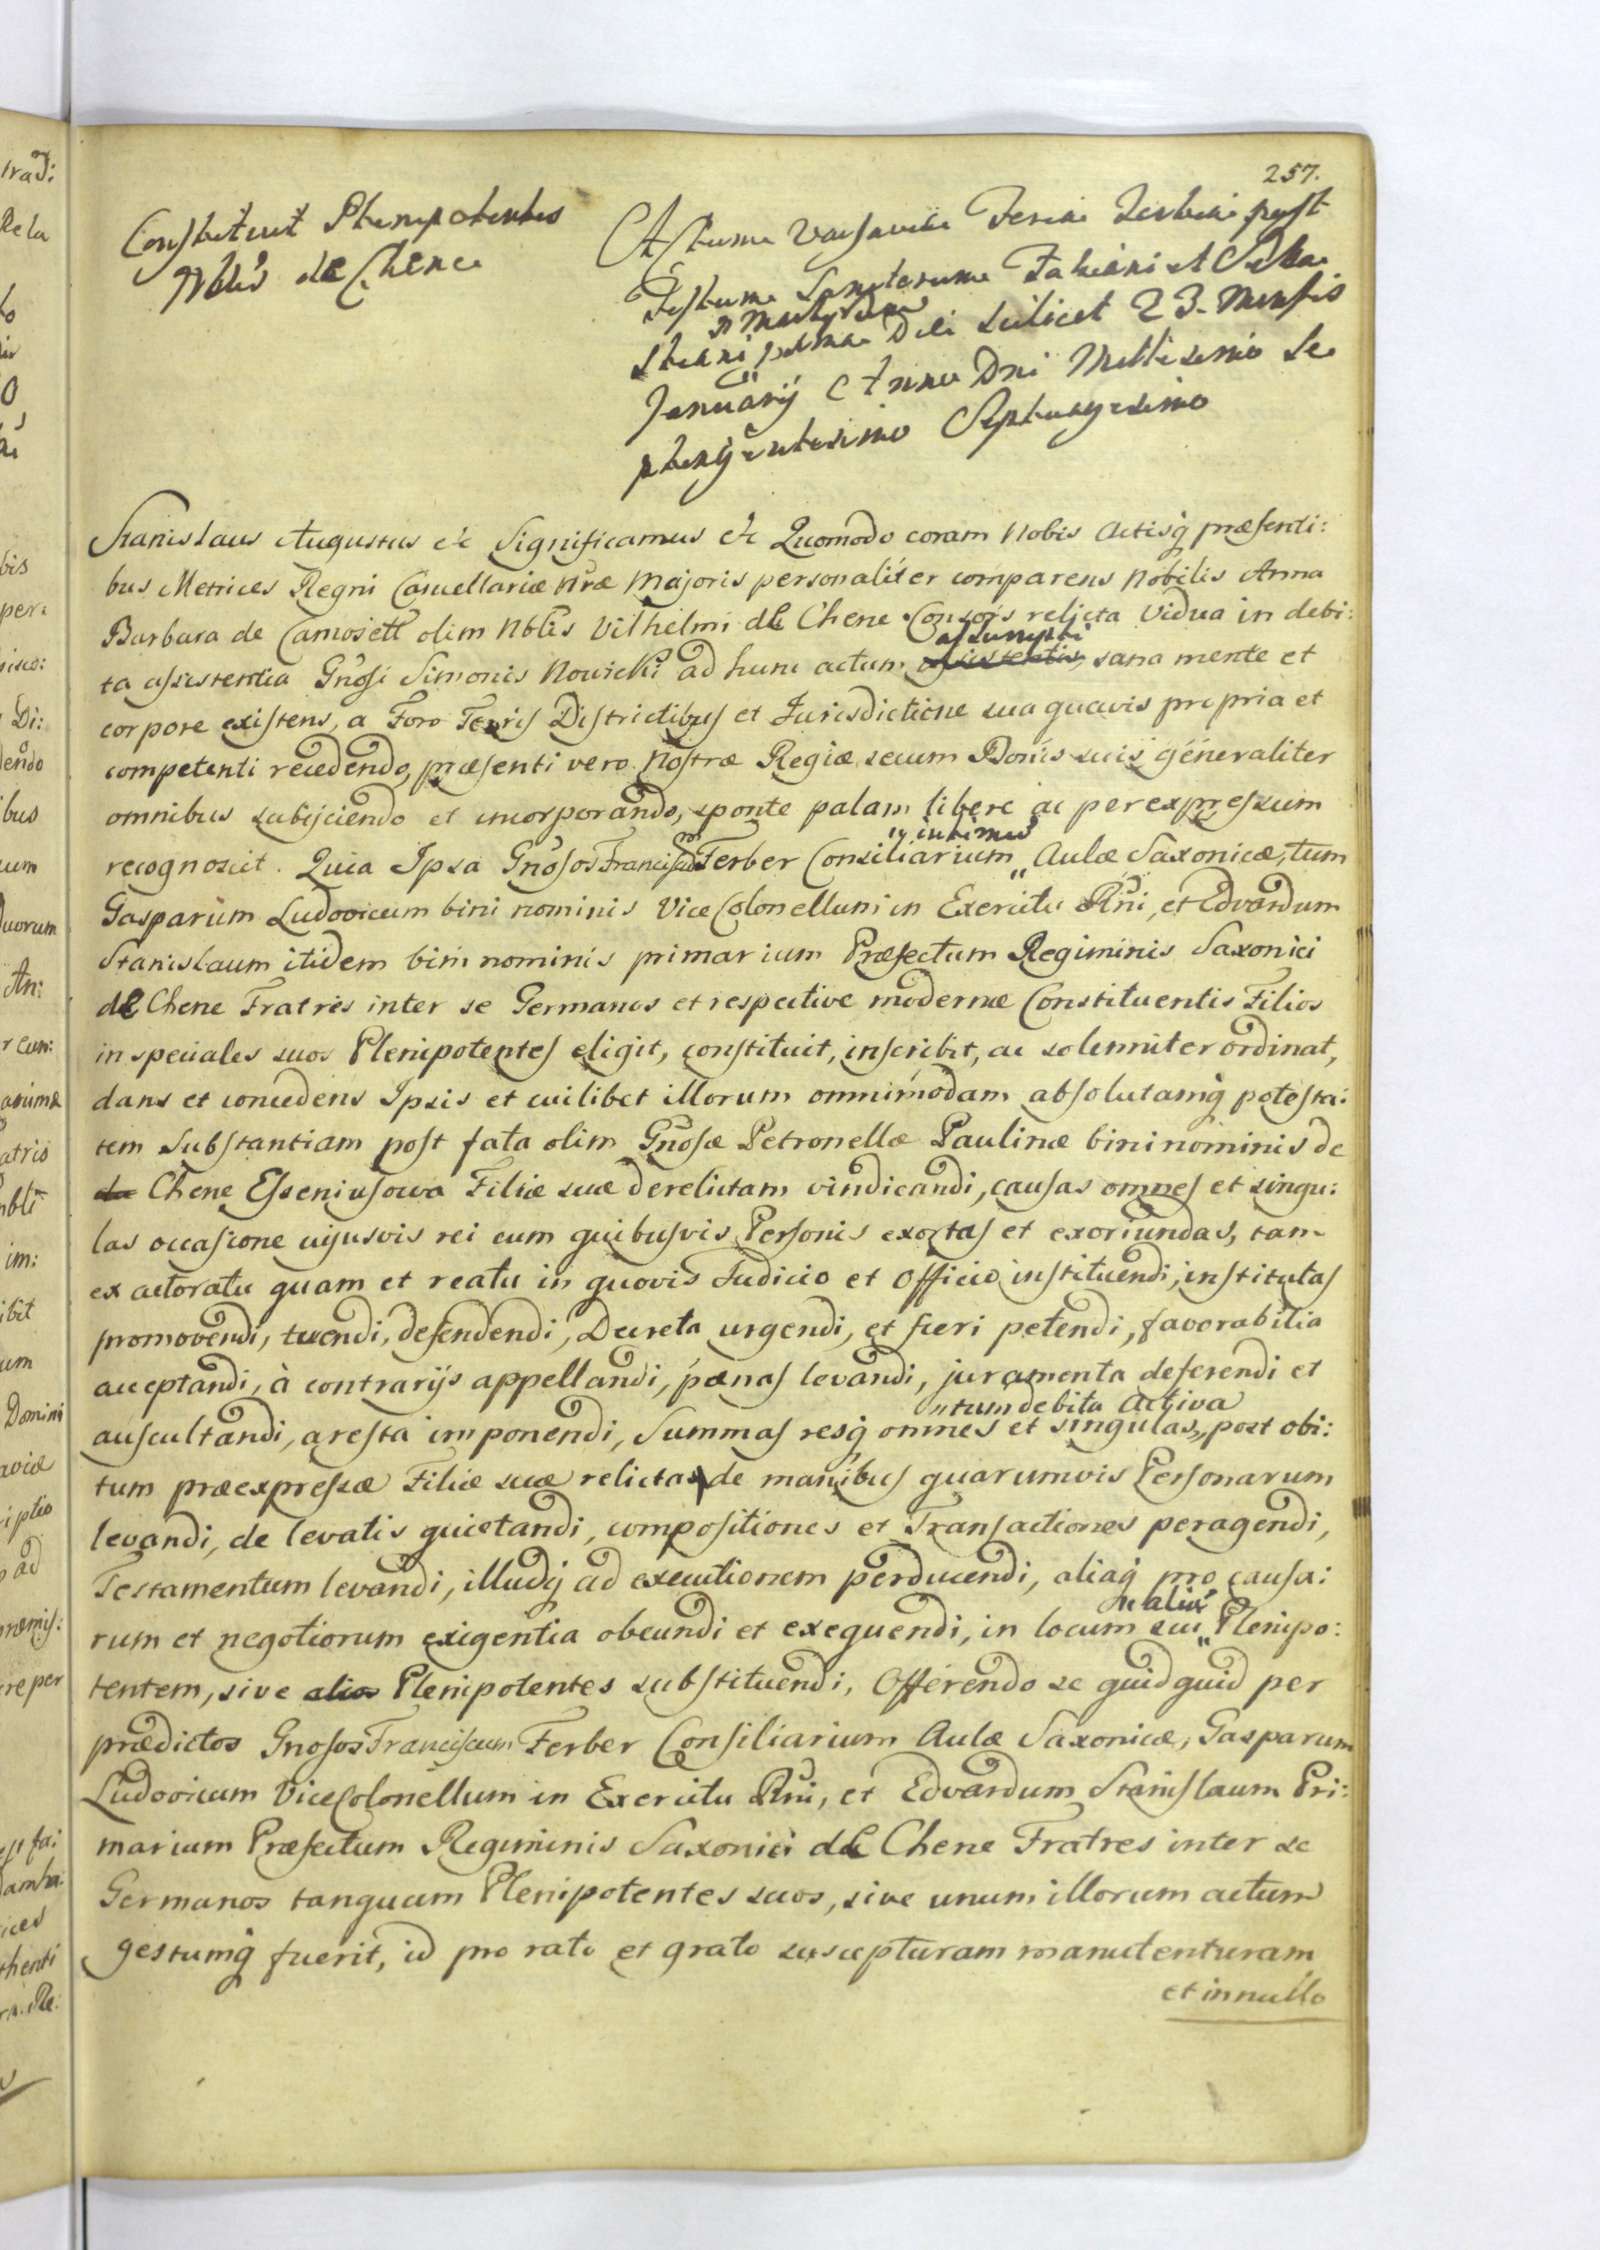 257.
Constituit Plenipotentes
Nblis de Chene
Actum Varsaviae Feria Tertia post
Festum Sanctorum Fabiani et Seba
stiani Martyrum prima Die scilicet 23. Mensis
January Anno Dni Millesimo Se
ptengentesimo Septuagesimo
Stanislaus Augustus etc Significamus etc Quomodo coram Nobis Actisq præsenti:
bus Metrices Regni Cancellariæ Nræ Majoris personaliter comparens Nobilis Anna
Barbara de Camosett olim Nblis Vilhelmi de Chene Consors relicta Vidua in debi:
ta assistentia Gnosi Simonis Nowicki ad hunc actum assumpti sana mente et
corpore existens, a Foro Terris Districtibus et Jurisdictione sua quavis propria et
competenti recedendo, præsenti vero Nostræ Regiæ secum Bonis suis generaliter
omnibus subijciendo et incorporando, sponte palam libere ac per expressum
recognoscit. Quia Ipsa Gnosos Franciscum Ferber Consiliarium intimum Aulæ Saxonicæ, tum
Gasparum Ludovicum bini nominis Vice Colonellum in Exercitu Rni, et Edvardum
Stanislaum itidem bini nominis primarium Præfectum Regiminis Saxonici
de Chene Fratres inter se Germanos et respective modernæ Constituentis Filios
in speciales suos Plenipotentes eligit, constituit, inscribit, ac solemniter ordinat,
dans et concedens Ipsis et cuilibet illorum omnimodam absolutamq potesta:
tem Substantiam post fata olim Gnosæ Petronellæ Paulinæ bini nominis de
de Chene Esseniusowa Filiæ suæ derelictam vindicandi, causas omnes et singu:
las occasione cujusvis rei cum quibusvis Personis exortas et exoriundas, tam
ex actoratu quam et reatu in quovis Judicio et Officio instituendi, institutas
promovendi, tuendi, defendendi, Decreta urgendi, et fieri petendi, favorabilia
acceptandi, à contrarijs appellandi, pænas levandi, juramenta deferendi et
auscultandi, aresta imponendi, Summas resq omnes et singulas, tum debita activa post obi:
tum præexpressæ Filiæ suæ relictas de manibus quarumvis Personarum
levandi, de levatis quietandi, compositiones et Transactiones peragendi,
Testamentum levandi, illudq ad executionem perducendi, aliaq pro causa:
rum et negotiorum exigentia obeundi et exequendi, in locum sui alium Plenipo:
tentem, sive alios Plenipotentes substituendi. Offerendo se quidquid per
prædictos Gnosos Franciscum Ferber Consiliarium Aulæ Saxonicæ, Gasparum
Ludovicum Vice Colonellum in Exercitu Rni, et Edvardum Stanislaum Pri:
marium Præfectum Regiminis Saxonici de Chene Fratres inter se
Germanos tanquam Plenipotentes suos, sive unum illorum actum
gestumq fuerit, id pro rato et grato suscepturam manutenturam
et in nullo